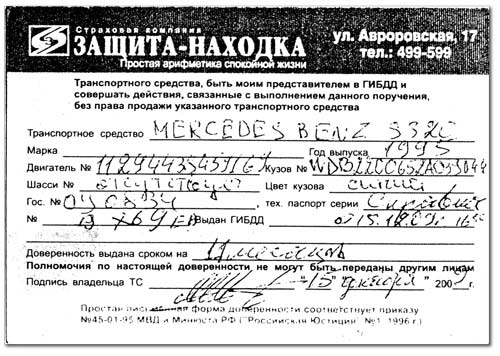 Страховая компания
ЗАЩИТА-НАХОДКА
Простая арифметика спокойной жизни
ул. Авроровская, 17
тел.: 499-599
Транспортного средства, быть моим представителем в ГИБДД и
совершать действия, связанные с выполнением данного поручения,
без права продажи указанного транспортного средства
Транспортное средство MERCEDES BENZ S320
Марка Год выпуска 1995
Двигатель № Кузов №
Шасси № отсутствует Цвет кузова синий
Гос. № тех. паспорт серии Справка
№ Выдан ГИБДД
Доверенность выдана сроком на
Полномочия по настоящей доверенности не могут быть переданы другим лицам
Подпись владельца ТС "15" декабря 200
Простая письменная форма доверенности соответствует приказу
№45-01-95 МВД и Минюста РФ ("Российская Юстиция" №1, 1996 г.)